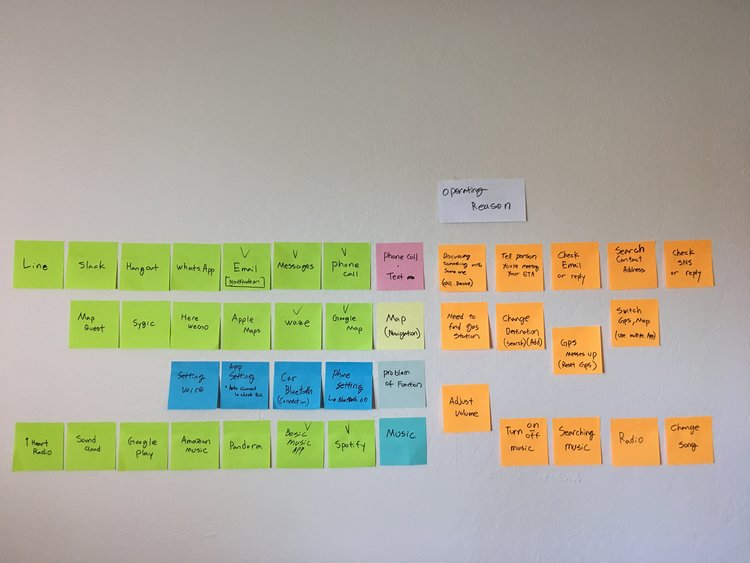 Operating
Reason
Line
Slack
Hangout
WhatsApp
Email
Messages
phone
call
phone Call
Text
Discussing
something with
someone
Tell person
You're meeting
Your ETA
Check
Email
or reply
Search
Contact
Address
Check
SNS
or reply
Map
Quest
Sygic
Here
wego
Apple
Maps
waze
Google
Map
Map
(Navigation)
Need to
find gas
station
Change
Destination
(search)(Add)
GPS
Messes up
(Reset Gps)
Switch
Gps, Map
Setting
Voice
App
Setting
Car
Bluetooth
(Connection)
Phone
Setting
Bluetooth on
problem
of Function
Adjust
Volume
i Heart
Radio
Sound
cloud
Google
play
Amazon
music
Pandora
Basic
music
APP
Spotify
Music
Turn on
off
music
Searching
music
Radio
Change
Song